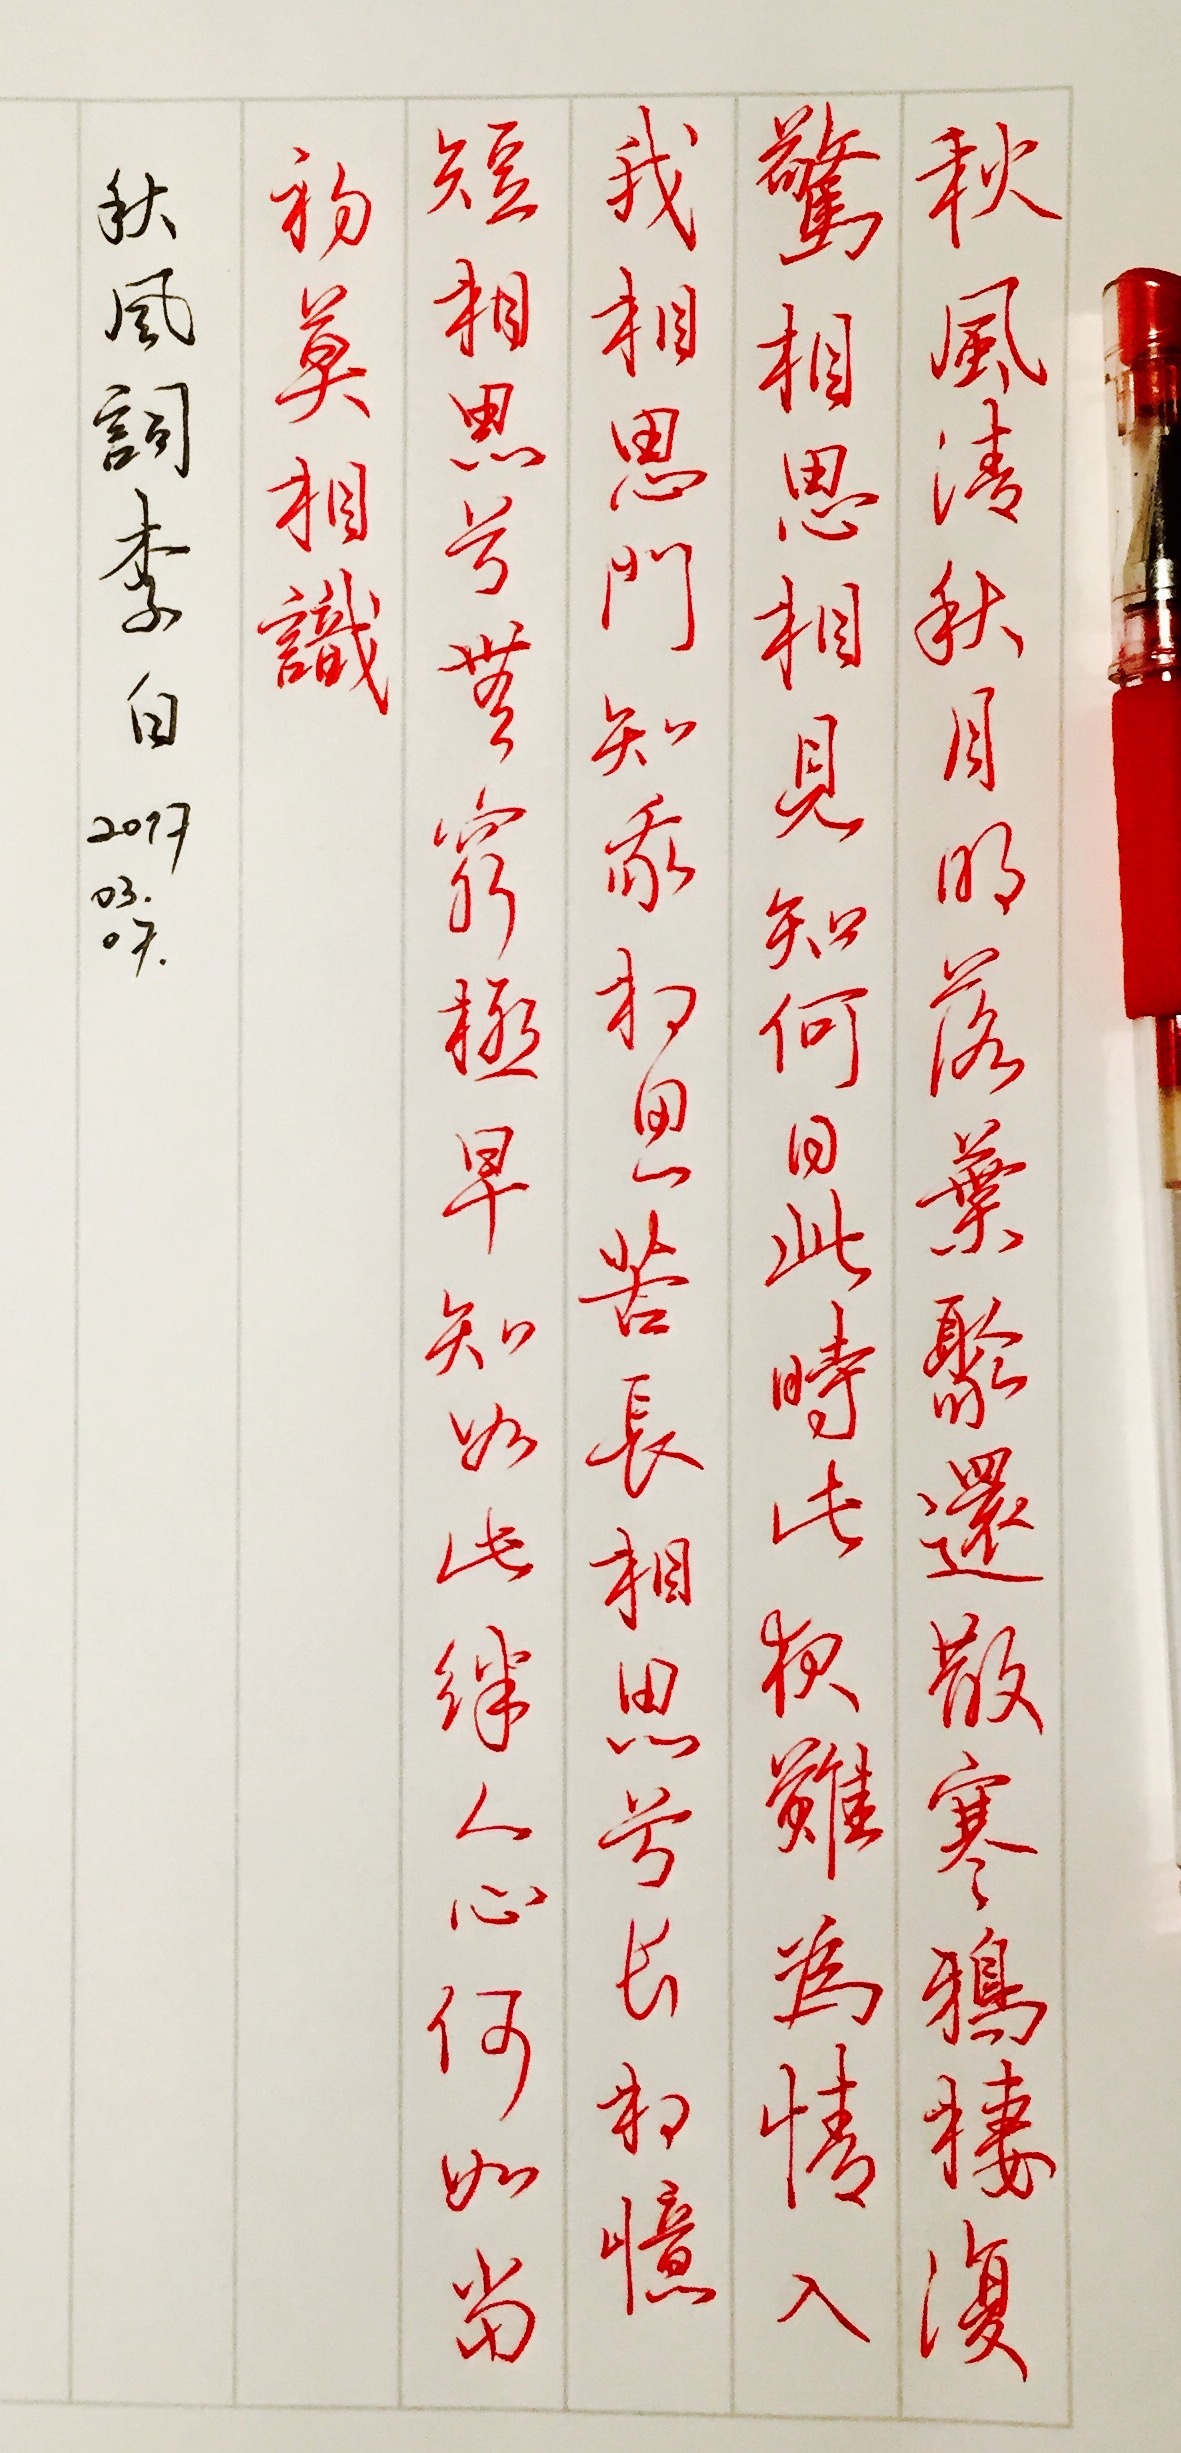 秋風清秋月明落葉聚還散寒鴉棲復
驚相思相見知何日此時此夜難為情入
我相思門知我相思苦長相思兮长相憶
短相思兮無窮極早知如此絆人心何如當
初莫相識
秋風詞李白2017
03.
07.